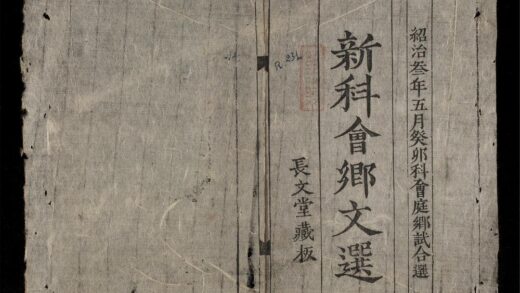 紹治叁年五月癸卯科會庭鄉試合選
新科會鄉文選
長文堂藏板
R.231